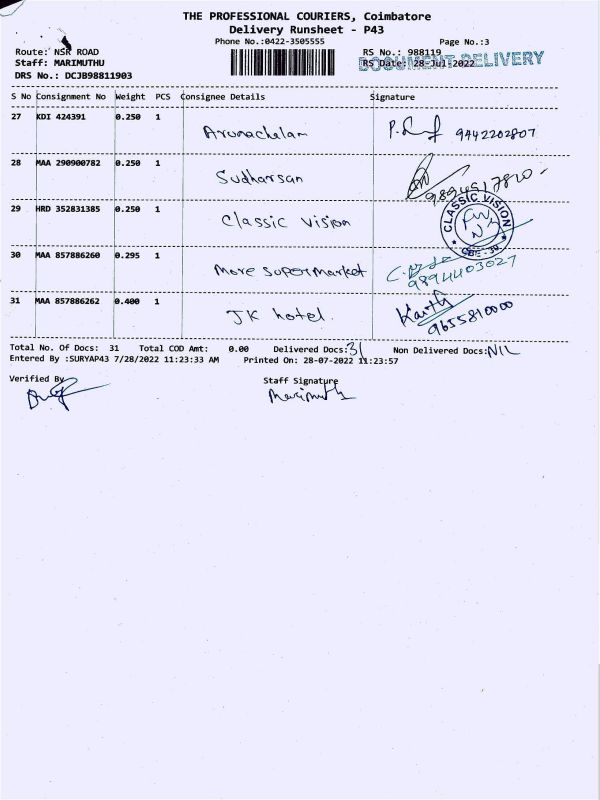 THE PROFESSIONAL COURIERS, Coimbatore
Delivery Runsheet - P43
Phone No.:0422-3505555
Page No.:3
Route: NSR ROAD
RS No.: 988119
DOCUMENT DELIVERY
Staff: MARIMUTHU
RS Date: 28-Jul-2022
DRS No.: DCJB98811903
S No Consignment No Weight PCS Consignee Details Signature
27 KDI 424391 0.250 1 Arunachalam 9442202807
28 MAA 290900782 0.250 1 Sudharsan
29 HRD 352831385 0.250 1 Classic Vision
CLASSIC VISION
CBE - 39
30 MAA 857886260 0.295 1 More Supermarket 9894403027
31 MAA 857886262 0.400 1 JK hotel. Karthi 9655810000
Total No. Of Docs: 31 Total COD Amt: 0.00 Delivered Docs:31 Non Delivered Docs:NIL
Entered By :SURYAP43 7/28/2022 11:23:33 AM Printed On: 28-07-2022 11:23:57
Verified By Staff Signature
Marimuth